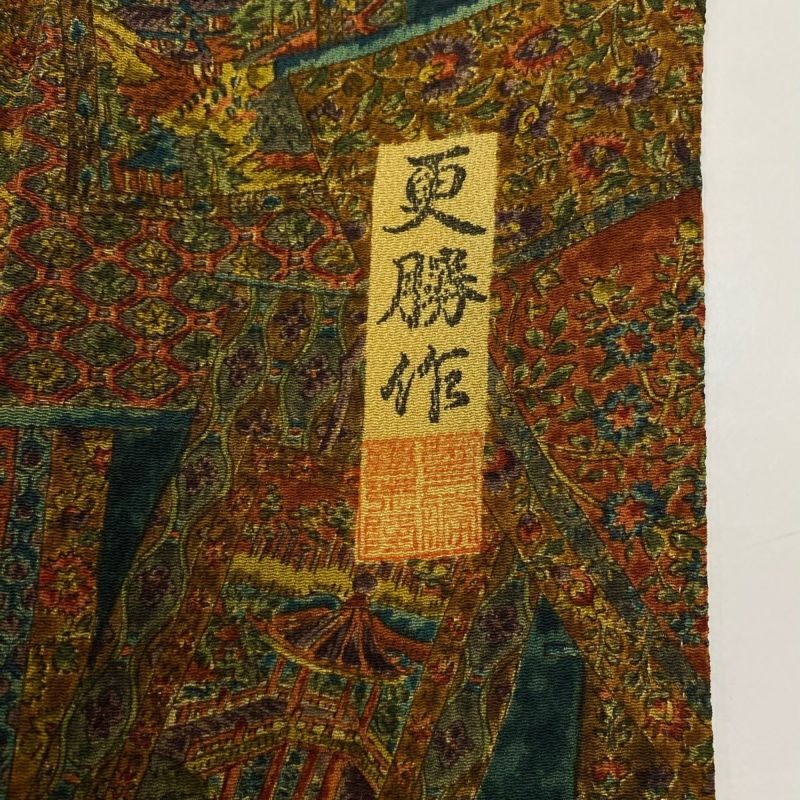 更勝作